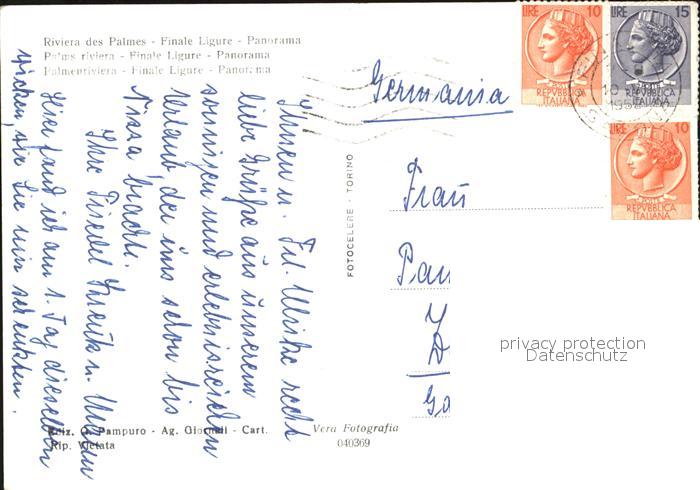 Riviera des Palmes - Finale Ligure - Panorama
Palms riviera - Finale Ligure - Panorama
Palmenriviera - Finale Ligure - Panorama
LIRE 10
POSTE
REPVBBLICA
ITALIANA
LIRE 15
REPVBBLICA
ITALIANA
LIRE 10
POSTE
REPVBBLICA
ITALIANA
Germania
Frau
Ihnen u. Frl. Ulrike recht
liebe Grüße aus unserem
sonnigen und erlebnisreichen
Urlaub, der uns schon bis
Nizza brachte.
Ihre Gisela u.
Hier fand ich am 1. Tag dieselben
wie Sie mir schenkten.
FOTOCELERE - TORINO
privacy protection
Datenschutz
Ediz. G. Pampuro - Ag. Giornali - Cart.
Rip. Vietata
Vera Fotografia
040369